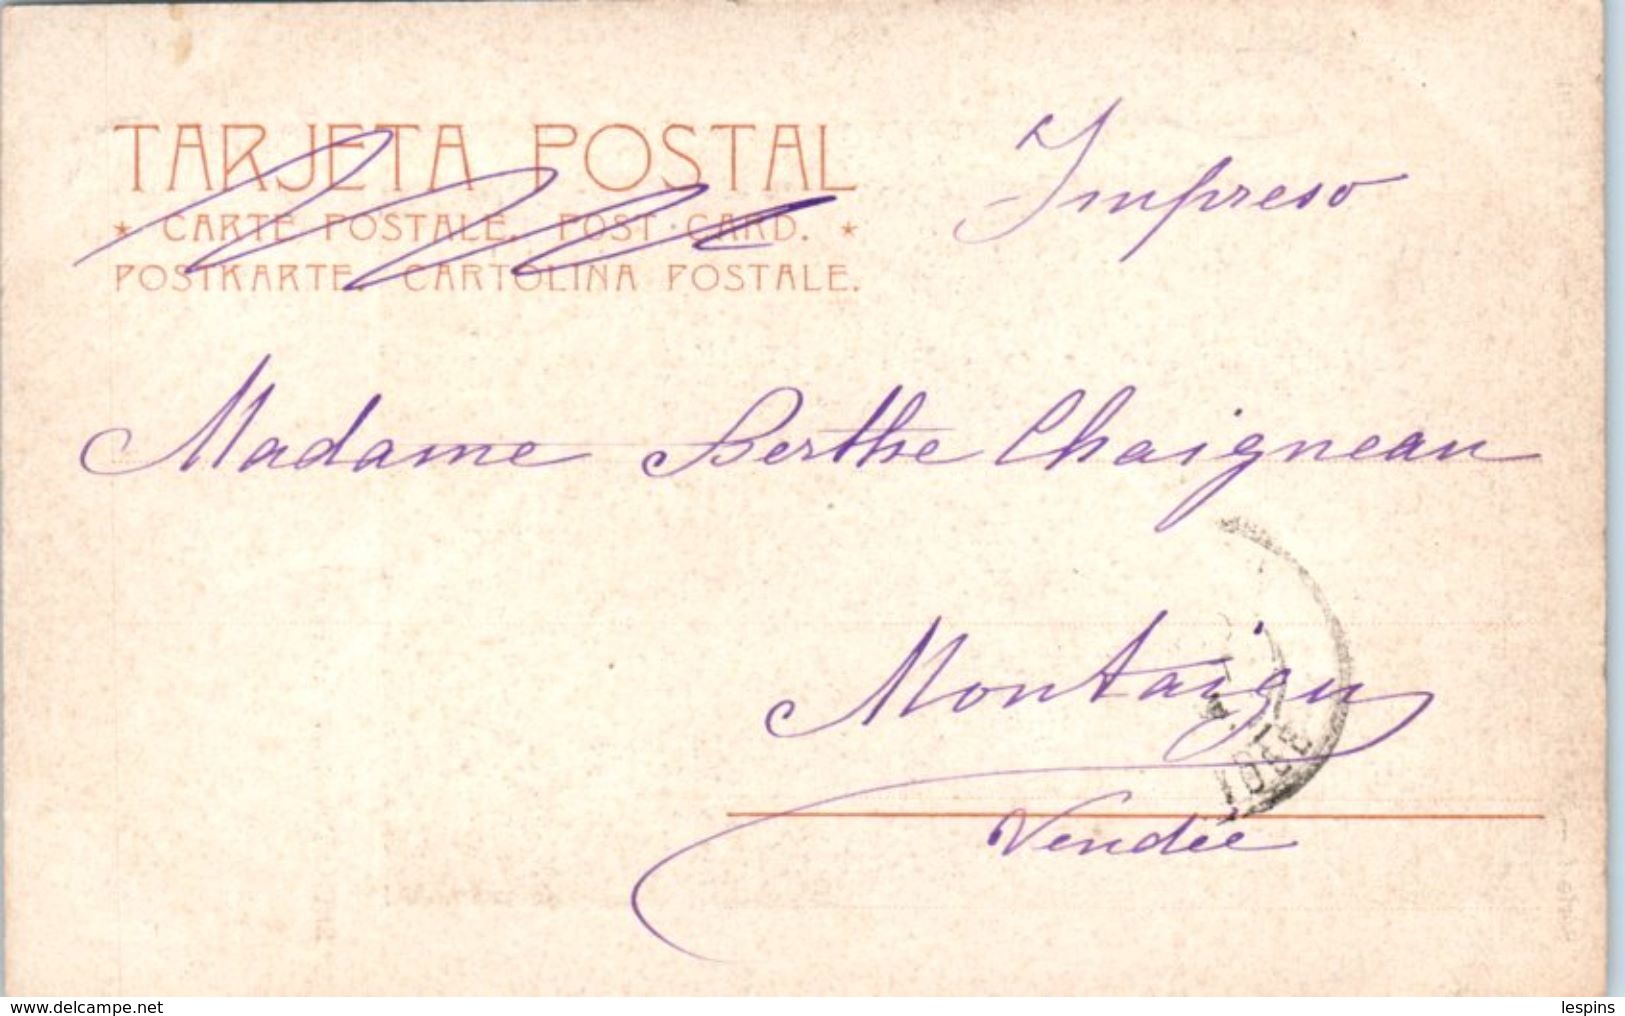 TARJETA POSTAL
* CARTE POSTALE. POST-CARD. *
POSTKARTE. CARTOLINA POSTALE.
Impreso
Madame Berthe Chaigneau
Montaigu
Vendée
www.delcampe.net
lespins